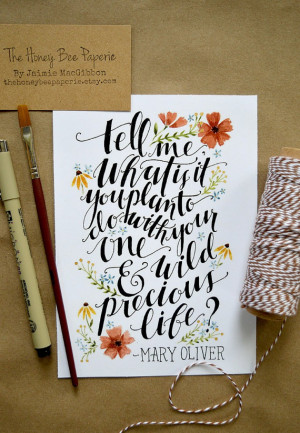 The Honey Bee Paperie
By Jaimie MacGibbon
thehoneybeepaperie.etsy.com
tell me
what is it
you plan to
do with your
one wild
& precious
life?
-MARY OLIVER